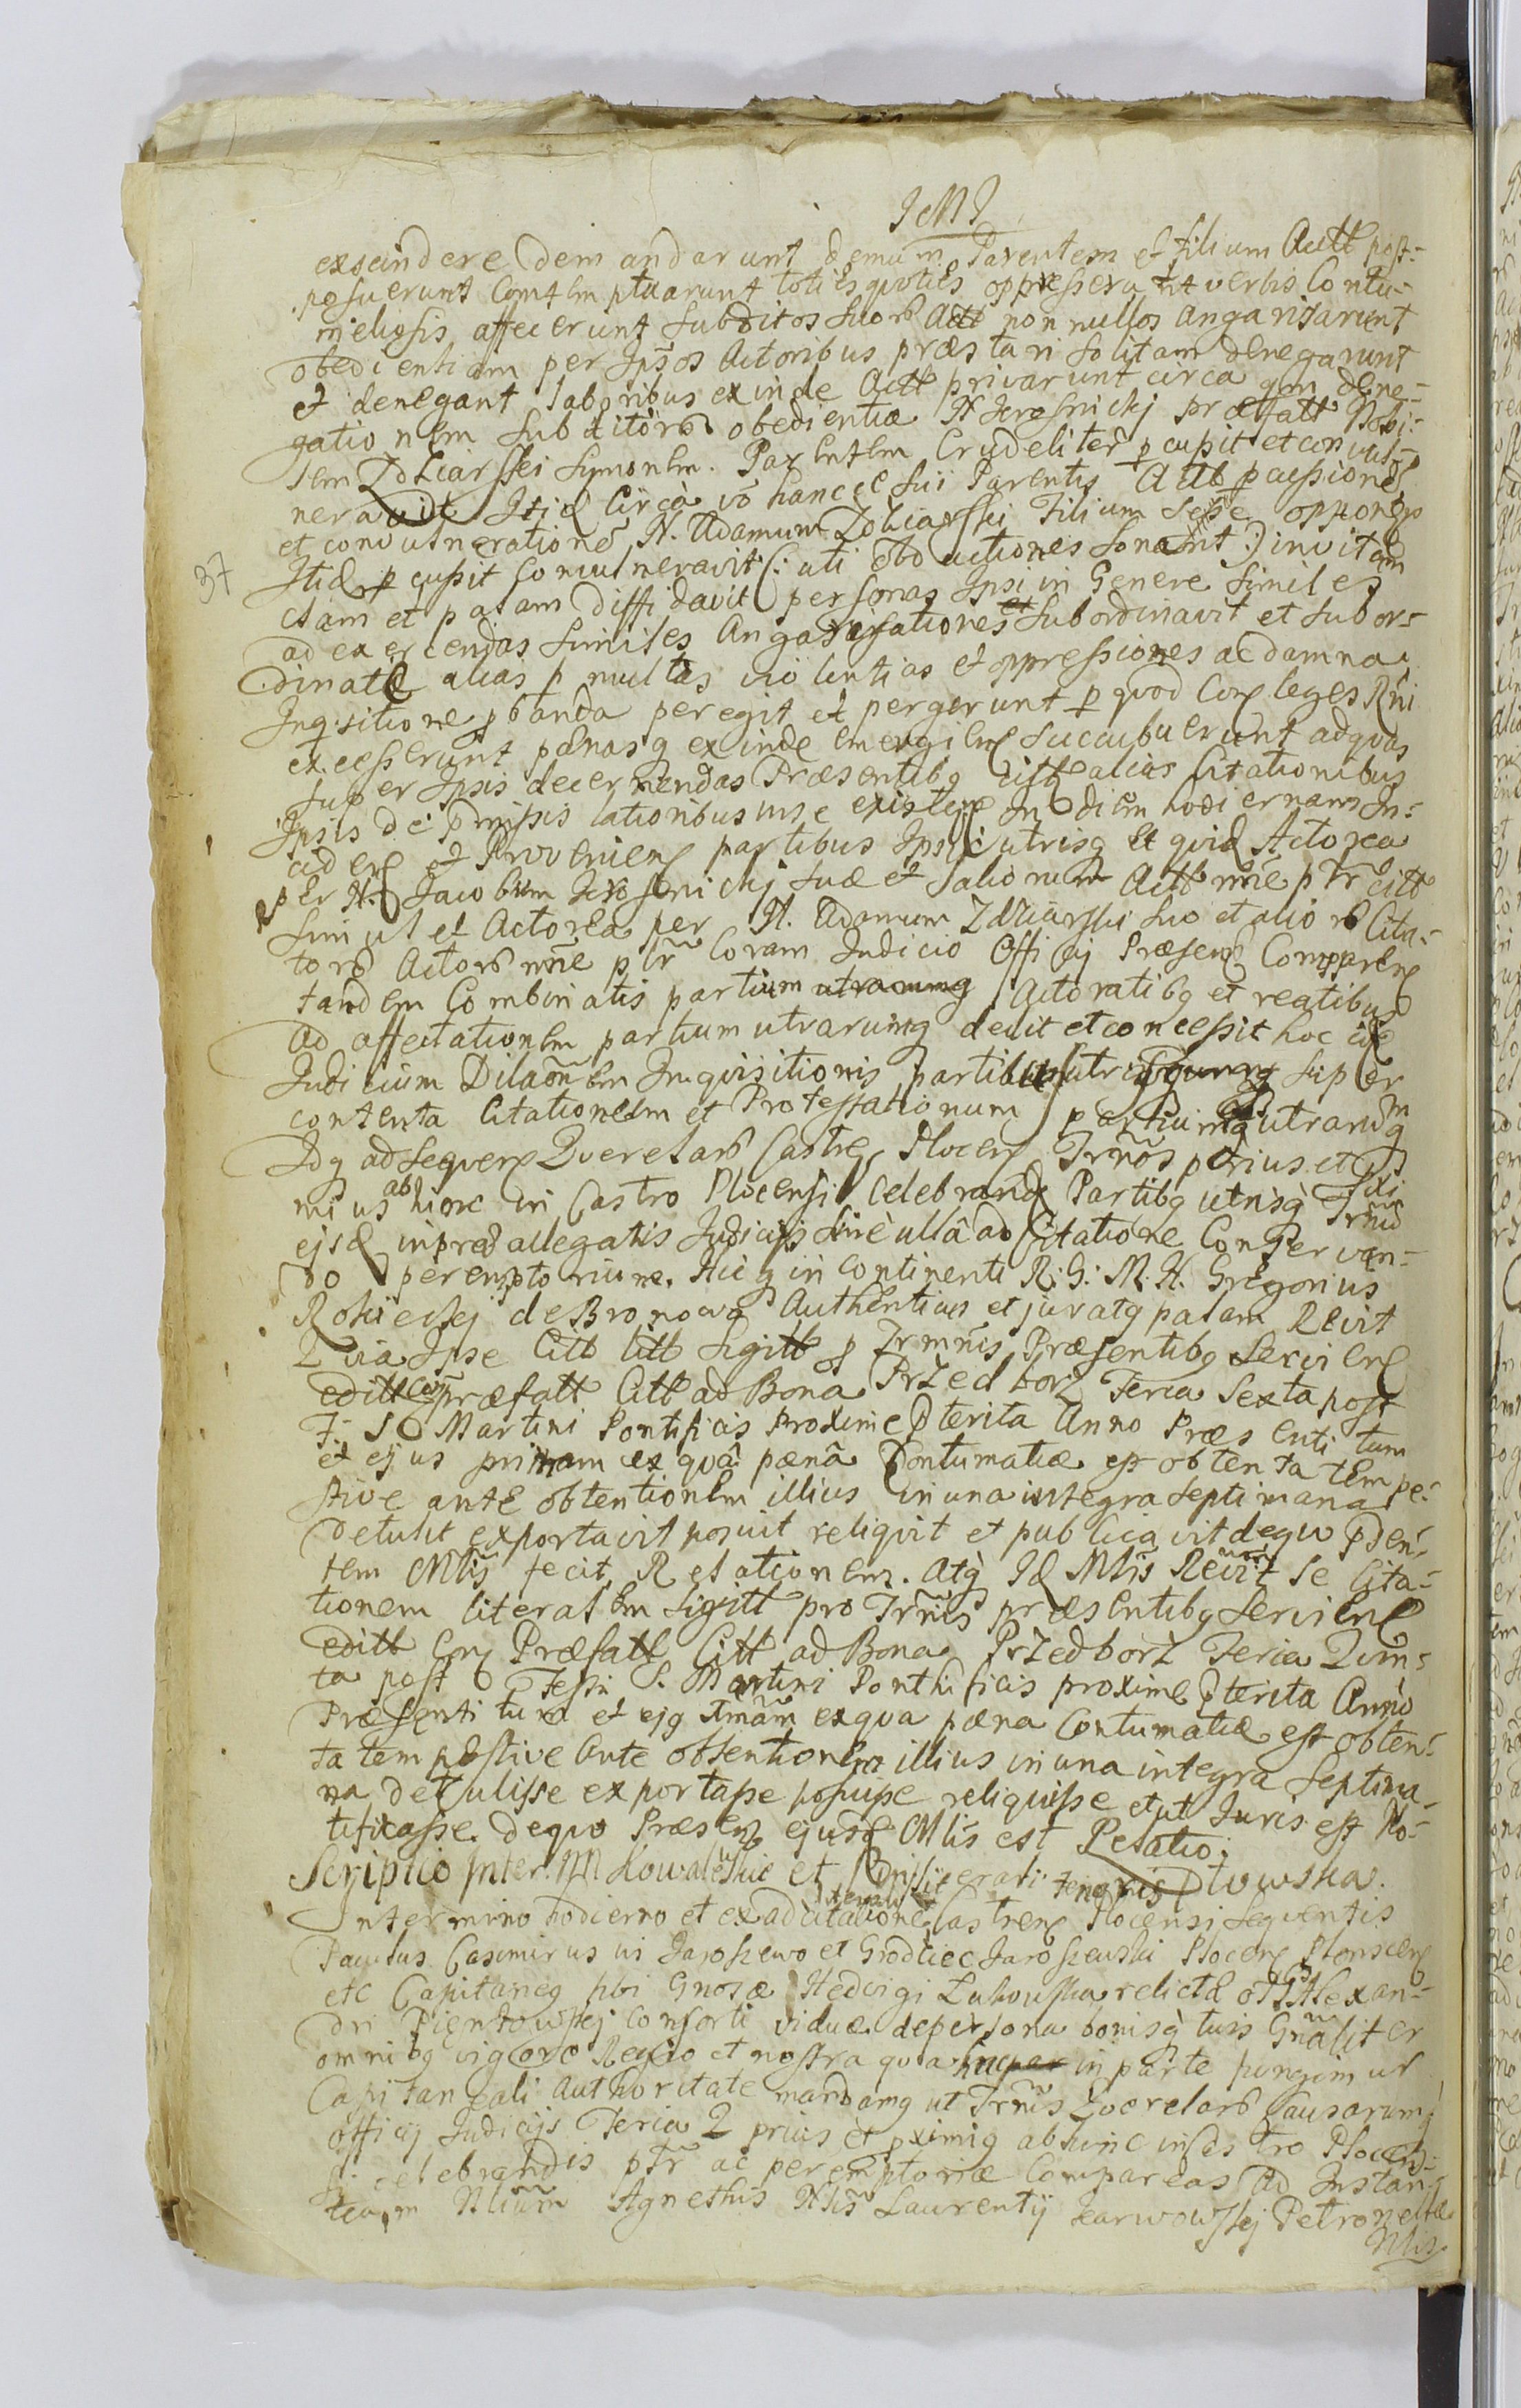 JMJ
exscindere demandarunt demum Parentem et filium Actt post-
posuerunt Contemptuarunt toties quoties oppresserunt verbis Contu-
meliosis affecerunt Subditos Suor Actt nonnullos angarisarunt
obedientiam per Ipsos Actoribus præstari solitam denegarunt
et denegant laboribus exinde Actt privarunt circa qm dene-
gationem Subditor obedientiæ N præfatt Nobi-
lem Zdziarski Symonem Parentem Crudeliter pcussit et convul-
neravit Itid Circà vo hancce sui Parentis Actt pcussione
et convulneratione N. Adamum Zdziarski Filium Sese opponen
37
Itid pcussit convulneravit (: uti obductiones Sonant :) invitam
clam et palam diffidavit personas Ipsi in Genere Similes
ad exercendas Similes Angarisationes et Subordinavit et Subor-
dinat alias p multas violentias et oppressiones ac damna
Inqsitione pbanda peregit et pergerunt p quod Con leges Rni
excesserunt pænasq exinde emergen Succubuerunt ad quas
super Ipsis decernendas Præsentibq citt alias Citationibus
Ipsis de pmissis lationibus inse existen In diem hodiernam In-
ciden et Provenien partibus Ipsis utrisq et quid Actorea
per N. Jacobum suæ et aliorum Actt nne ptr citt
simul et Actorea per N. Adamum Zdziarski suo et alior Cita-
tor Actor nne ptr Coram Judicio Officij Præsen Comparen
tandem Combinatis partium utrarumq Actoratibq et reatibus
ad affectationem partium utrarumq decit et concessit hoc
Judicium Dilaõnem Inquisitionis partibus super
contenta Citationem et Protestationum partium utrarumq
Idq ad sequen Querelar Castren Plocen Trños prius et pxi
mius ab hinc in Castro Plocensi celebrand Partibq utrisq Trñu
ejsd in præallegatis Judicijs sine ullâ ad Citatione Conservan-
do peremptorium. Hic q in continenti R. G. M. N. Gregorius
Rokicskj de Bronowo Authenticus et juratq palam Recit
Quia Ipse Citt litt Sigitt p Trmnis Præsentibq Servien
editt con præfatt Citt ad Bona Przedborz Feria Sexta post
F. S Martini Pontificis Proxime pterita Anno Præsenti tum
et ejus primam ex quâ pænâ Contumatiæ est obtenta tempe-
stive ante obtentionem illius in una integra Septimana
detulit exportavit posuit reliquit et publicavit dequo pden-
tem Mlis fecit Relationem. Atq Id Mlis Recit se Cita-
tionem literalem Sigitt pro Trñis præsentibq Servien
editt con Præfatt Citt ad Bona Przedborz Feria Quin-
ta post Festu S. Martini Ponthificis proxime pterita Anno
Præsenti tum et ejq ex qua pæna Contumatiæ est obten-
ta tempestive Ante obtentionem illius in una integra Septima-
na detulisse exportasse posuisse reliquisse et ut Juris est No-
tificasse. dequo Præsen ejusd Mlis est Relatio.
Scriptio Inter NN Kowalewskie et
In termino hodierno et ex ad citatione Castren Plocensi Sequentis
Paulus Casimirus in Jaroszewo et Grodziec Jaroszewski Plocen Plonscen
etc Capitaneq tibi Gnosæ Hedvigi Lukowska relictæ olim Gsi Alexan-
dri Pientowskj consorti viduæ de persona bonisq tuis Gñaliter
omnibq vigore Regio et nostra qua in parte fungimur
Capitaneali authoritate mandamq ut Trñis Querelar Causarumq
officij Judicijs Feria 2 prius et pximiq abhinc in Castro Plocen-
si celebrandis ptr ac peremptorie Compareas ad Instan-
tiam Nlium Agnethis Nlis Laurentij Karwowskj Petronellæ
Nlis